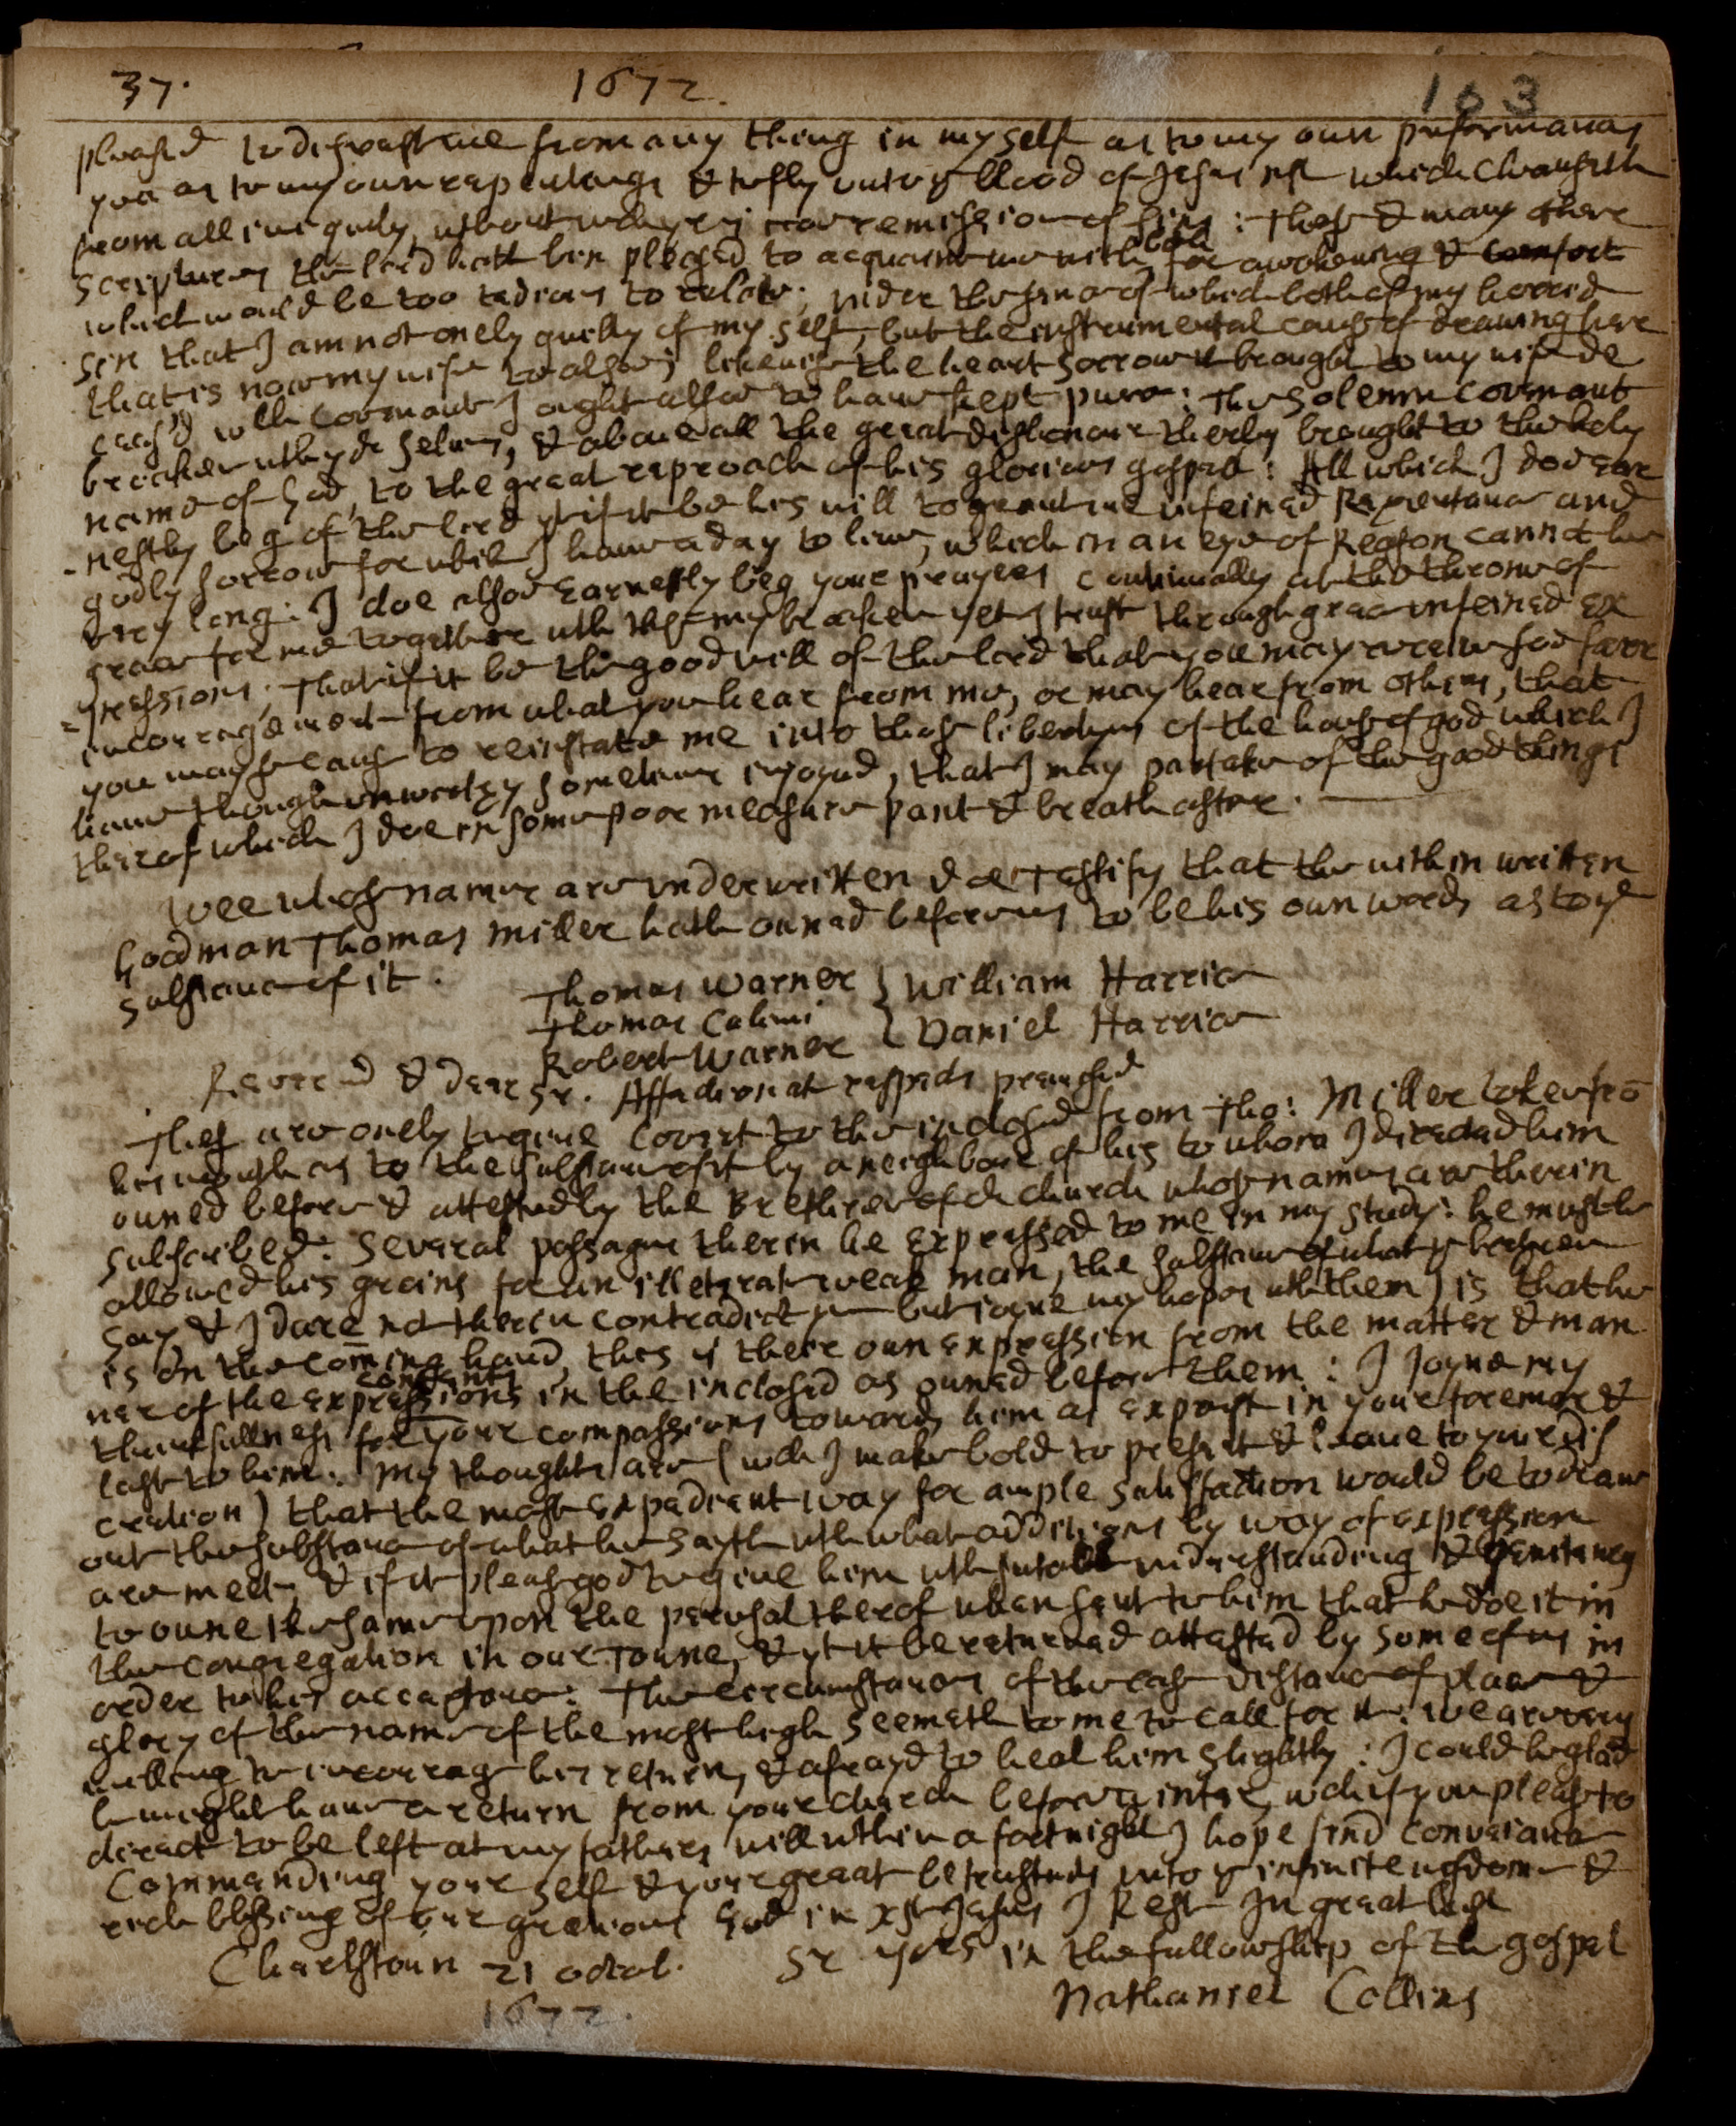 37. 1672. 103
pleased to divest me from any thing in my self as to my own performances
yea as to my own repentings & to fly unto ye blood of Jesus xst which cleanseth
from all iniquity, without which yr is no remission of sins: These & many other
scriptures the lord hath bin pleased to acquaint me with, both for awakening & comfort
which would be too tedious to relate; under the sense of which both of my horrid
sin that I am not onely guilty of my self, but the instrumental cause of drawing her
that is now my wife to also; likewise the heart sorrow it brought to my wife de
ceas'd wth covenant I ought alsoe to have kept pure: The solemn covenant
broken wth yor selves, & above all the great dishonour therby brought to the holy
name of God, to the great reproach of his glorious gospel: All which I doe ear
-nestly beg of the lord yt if it be his will to grant me unfeined Repentance and
godly sorrow for while I have a day to live, which in an eye of Reason cannot be
very long: I doe alsoe earnestly beg your prayers continually at the throne of
grace for me together wth these my broken yet I trust through grace unfeined ex
=pressions; That if it be the good will of the lord that you may receive soe farr
incouragement from what you hear from me, or may hear from others, that
you may see cause to reinstate me into those libertyes of the house of god which I
have though unworthy sometime injoyed, that I may partake of the good things
therof which I doe in some poor measure pant & breath after.
Wee whose names are underwritten doe Testify that the within written
Goodman Thomas Miller hath owned before us to be his own words as to ye
substance of it.
Thomas Warner } William Harris
Thomas
Robert Warner } Daniel Harris
Reverend & Dear Sr. Affectionat respects premised
These are onely to give Covert to the inclosed from Tho: Miller taken frō
his mouth as to the substance of it by a neighbour of his to whom I directed him
owned before & attested by the Brethren of or church whose names are therin
subscribed: Several passages therin he expressed to me in my study: he must be
allowed his grains for an illeterate weak man, the substance of what ye brethren
say & I dare not therein contradict ym but joyne my hopes wth them) is that he
is on the coming hand, this is their own expression from the matter & man
ner of the expressions in the inclosed as owned before them: I joyne my
constant
thankfullness for your compassions towards him as exprest in your former &
last to him. My thoughts are (wch I make bold to present & leave to your dis
cretion) that the most expedient way for ample satisfaction would be to draw
out the substance of what he sayth wth what additions by way of expression
are meet, & if it please god to give him wth suitable understanding & penitency
to owne the same upon the perusal therof when sent to him that he doe it in
the congregation in our Towne, & yt it be returned attested by some of us in
order to his acceptance: The circumstances of the case distance of place &
glory of the name of the most high seemeth to me to call for it: we are very
willing to incourage his return, & afrayd to heal him slightly: I could be glad
he might have a return from your church before winter, wch if you please to
direct to be left at my fathers will within a fortnight I hope find conveiance
Commending your self & your great betrustments unto ye infinite wisdome &
rich blessing of our gracious God in xst Jesus I Rest In great hast
Charlstown 21 octob. Sr yors in the fellowship of the gospel
1672. Nathaniel Collins